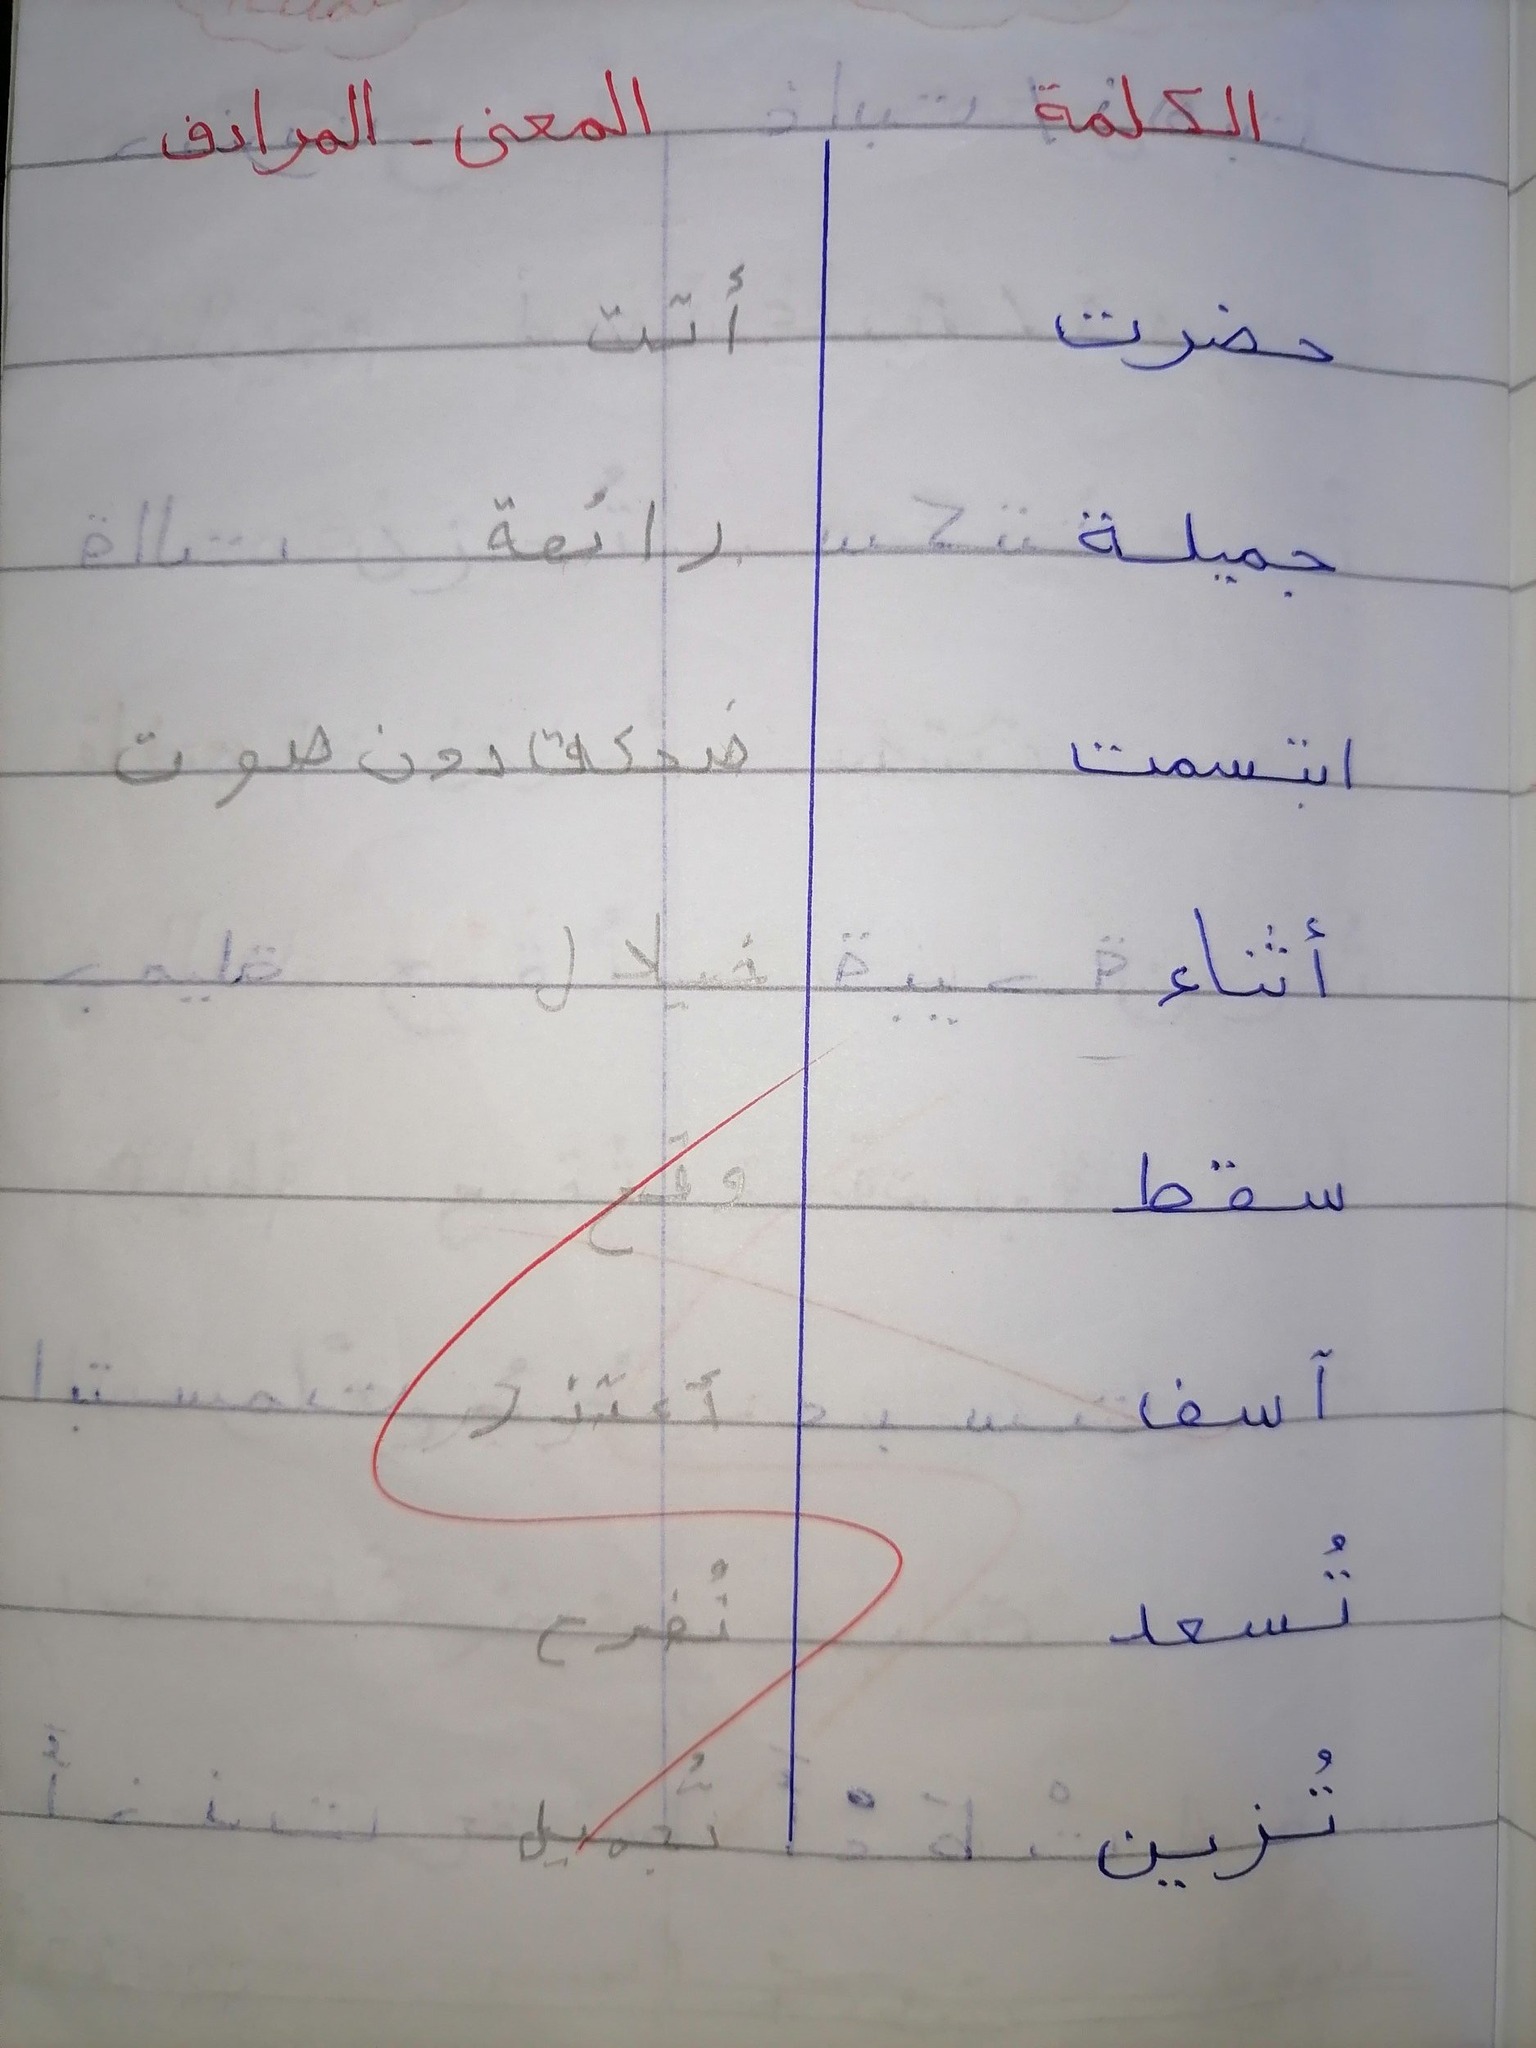 الكلمة المعنى - المرادف
حضرت أتت
جميلة رائعة
ابتسمت ضحكت دون صوت
أثناء خلال
سقط وقع
آسف أعتذر
تُسعد تُفرح
تُزين تُجميل